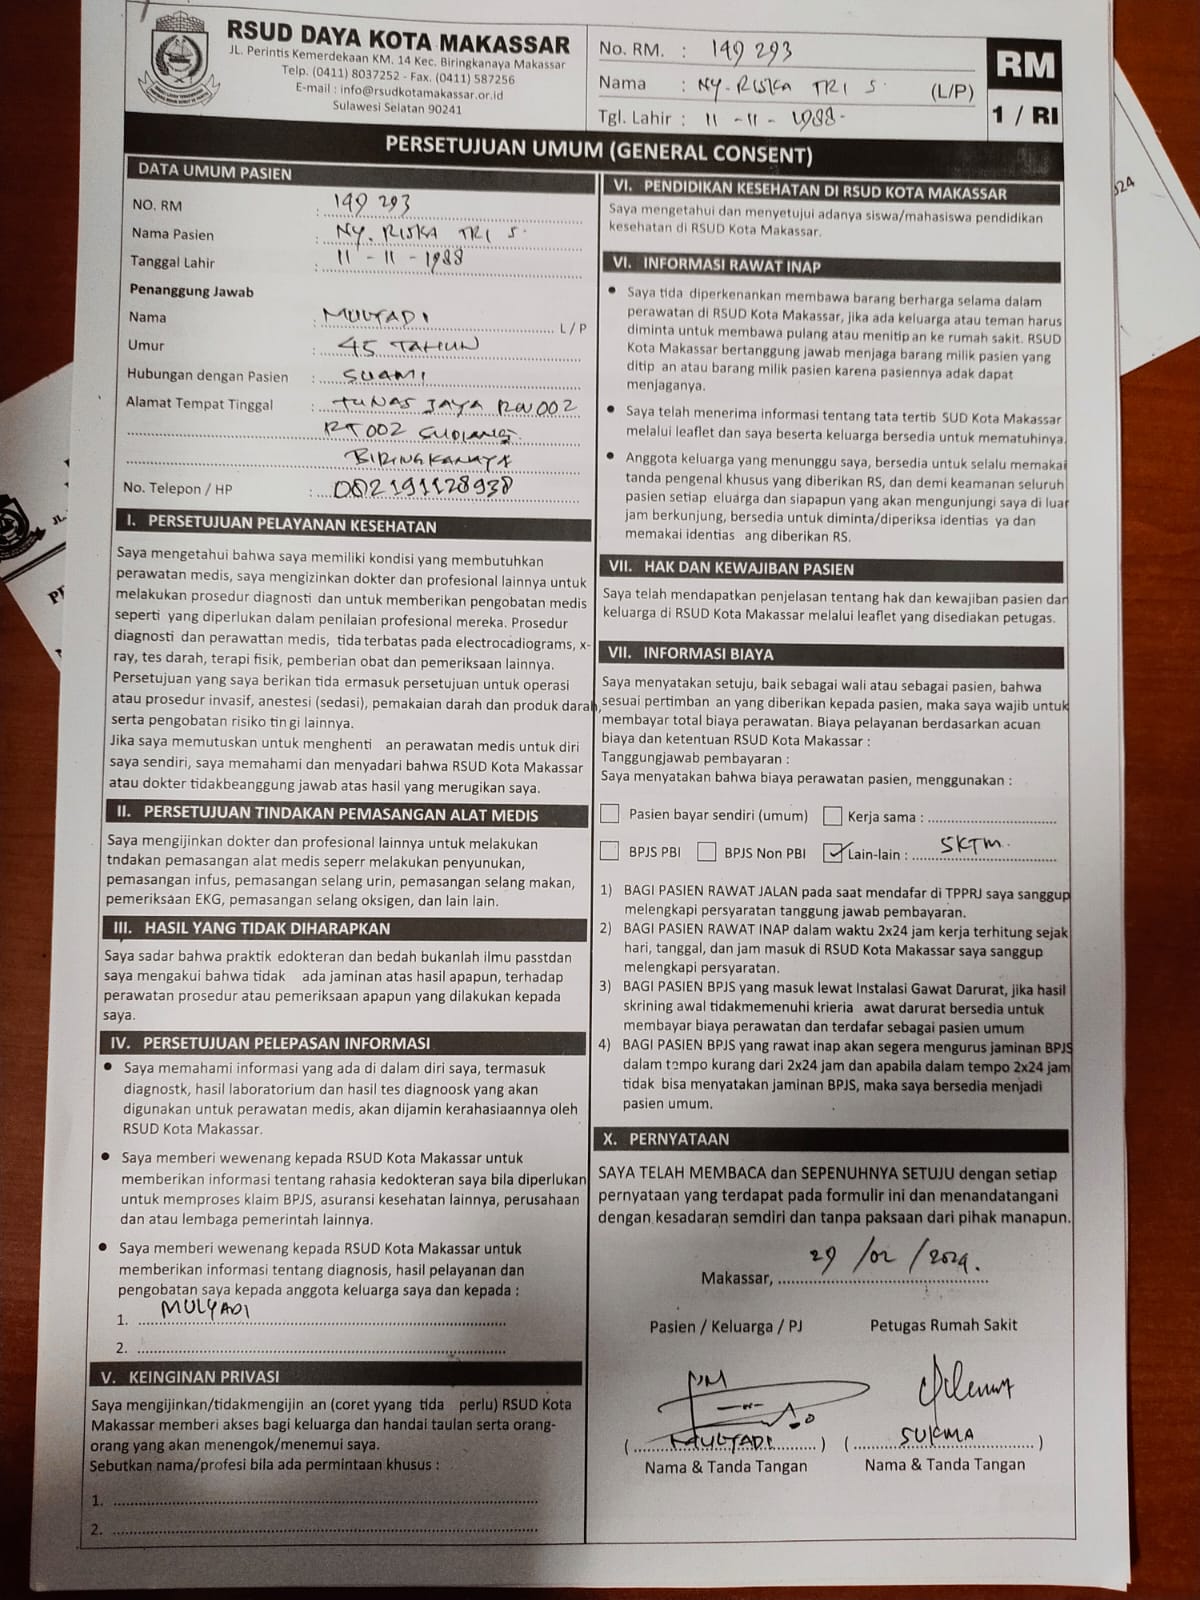 RSUD DAYA KOTA MAKASSAR
JL. Perintis Kemerdekaan KM. 14 Kec. Biringkanaya Makassar
Telp. (0411) 8037252 - Fax. (0411) 587256
E-mail : info@rsudkotamakassar.or.id
Sulawesi Selatan 90241
No. RM. : 149 293
Nama : NY. RISKA TRI S. (L/P)
Tgl. Lahir : 11 - 11 - 1988-
RM
1 / RI
PERSETUJUAN UMUM (GENERAL CONSENT)
DATA UMUM PASIEN
NO. RM : 149 293
Nama Pasien : NY. RISKA TRI S.
Tanggal Lahir : 11 - 11 - 1988
Penanggung Jawab
Nama : MULYADI L / P
Umur : 45 TAHUN
Hubungan dengan Pasien : SUAMI
Alamat Tempat Tinggal : TUNAS JAYA RW 002
RT 002 SUDIANG
BIRINGKANAYA
No. Telepon / HP : 082191128938
I. PERSETUJUAN PELAYANAN KESEHATAN
Saya mengetahui bahwa saya memiliki kondisi yang membutuhkan
perawatan medis, saya mengizinkan dokter dan profesional lainnya untuk
melakukan prosedur diagnosti dan untuk memberikan pengobatan medis
seperti yang diperlukan dalam penilaian profesional mereka. Prosedur
diagnosti dan perawattan medis, tida terbatas pada electrocadiograms, x-
ray, tes darah, terapi fisik, pemberian obat dan pemeriksaan lainnya.
Persetujuan yang saya berikan tida ermasuk persetujuan untuk operasi
atau prosedur invasif, anestesi (sedasi), pemakaian darah dan produk darah,
serta pengobatan risiko tin gi lainnya.
Jika saya memutuskan untuk menghenti an perawatan medis untuk diri
saya sendiri, saya memahami dan menyadari bahwa RSUD Kota Makassar
atau dokter tidakbeanggung jawab atas hasil yang merugikan saya.
II. PERSETUJUAN TINDAKAN PEMASANGAN ALAT MEDIS
Saya mengijinkan dokter dan profesional lainnya untuk melakukan
tndakan pemasangan alat medis seperr melakukan penyunukan,
pemasangan infus, pemasangan selang urin, pemasangan selang makan,
pemeriksaan EKG, pemasangan selang oksigen, dan lain lain.
III. HASIL YANG TIDAK DIHARAPKAN
Saya sadar bahwa praktik edokteran dan bedah bukanlah ilmu passtdan
saya mengakui bahwa tidak ada jaminan atas hasil apapun, terhadap
perawatan prosedur atau pemeriksaan apapun yang dilakukan kepada
saya.
IV. PERSETUJUAN PELEPASAN INFORMASI
• Saya memahami informasi yang ada di dalam diri saya, termasuk
diagnostk, hasil laboratorium dan hasil tes diagnoosk yang akan
digunakan untuk perawatan medis, akan dijamin kerahasiaannya oleh
RSUD Kota Makassar.
• Saya memberi wewenang kepada RSUD Kota Makassar untuk
memberikan informasi tentang rahasia kedokteran saya bila diperlukan
untuk memproses klaim BPJS, asuransi kesehatan lainnya, perusahaan
dan atau lembaga pemerintah lainnya.
• Saya memberi wewenang kepada RSUD Kota Makassar untuk
memberikan informasi tentang diagnosis, hasil pelayanan dan
pengobatan saya kepada anggota keluarga saya dan kepada :
1. MULYADI
2.
V. KEINGINAN PRIVASI
Saya mengijinkan/tidakmengijin an (coret yyang tida perlu) RSUD Kota
Makassar memberi akses bagi keluarga dan handai taulan serta orang-
orang yang akan menengok/menemui saya.
Sebutkan nama/profesi bila ada permintaan khusus :
1.
2.
VI. PENDIDIKAN KESEHATAN DI RSUD KOTA MAKASSAR
Saya mengetahui dan menyetujui adanya siswa/mahasiswa pendidikan
kesehatan di RSUD Kota Makassar.
VI. INFORMASI RAWAT INAP
• Saya tida diperkenankan membawa barang berharga selama dalam
perawatan di RSUD Kota Makassar, jika ada keluarga atau teman harus
diminta untuk membawa pulang atau menitip an ke rumah sakit. RSUD
Kota Makassar bertanggung jawab menjaga barang milik pasien yang
ditip an atau barang milik pasien karena pasiennya adak dapat
menjaganya.
• Saya telah menerima informasi tentang tata tertib SUD Kota Makassar
melalui leaflet dan saya beserta keluarga bersedia untuk mematuhinya.
• Anggota keluarga yang menunggu saya, bersedia untuk selalu memakai
tanda pengenal khusus yang diberikan RS, dan demi keamanan seluruh
pasien setiap eluarga dan siapapun yang akan mengunjungi saya di luar
jam berkunjung, bersedia untuk diminta/diperiksa identias ya dan
memakai identias ang diberikan RS.
VII. HAK DAN KEWAJIBAN PASIEN
Saya telah mendapatkan penjelasan tentang hak dan kewajiban pasien dan
keluarga di RSUD Kota Makassar melalui leaflet yang disediakan petugas.
VII. INFORMASI BIAYA
Saya menyatakan setuju, baik sebagai wali atau sebagai pasien, bahwa
sesuai pertimban an yang diberikan kepada pasien, maka saya wajib untuk
membayar total biaya perawatan. Biaya pelayanan berdasarkan acuan
biaya dan ketentuan RSUD Kota Makassar :
Tanggungjawab pembayaran :
Saya menyatakan bahwa biaya perawatan pasien, menggunakan :
Pasien bayar sendiri (umum) Kerja sama :
BPJS PBI BPJS Non PBI ✓ Lain-lain : SKTM.
1) BAGI PASIEN RAWAT JALAN pada saat mendafar di TPPRJ saya sanggup
melengkapi persyaratan tanggung jawab pembayaran.
2) BAGI PASIEN RAWAT INAP dalam waktu 2x24 jam kerja terhitung sejak
hari, tanggal, dan jam masuk di RSUD Kota Makassar saya sanggup
melengkapi persyaratan.
3) BAGI PASIEN BPJS yang masuk lewat Instalasi Gawat Darurat, jika hasil
skrining awal tidakmemenuhi krieria awat darurat bersedia untuk
membayar biaya perawatan dan terdafar sebagai pasien umum
4) BAGI PASIEN BPJS yang rawat inap akan segera mengurus jaminan BPJS
dalam tempo kurang dari 2x24 jam dan apabila dalam tempo 2x24 jam
tidak bisa menyatakan jaminan BPJS, maka saya bersedia menjadi
pasien umum.
X. PERNYATAAN
SAYA TELAH MEMBACA dan SEPENUHNYA SETUJU dengan setiap
pernyataan yang terdapat pada formulir ini dan menandatangani
dengan kesadaran semdiri dan tanpa paksaan dari pihak manapun.
Makassar, 29 / 02 / 2024.
Pasien / Keluarga / PJ Petugas Rumah Sakit
( MULYADI ) ( SUKMA )
Nama & Tanda Tangan Nama & Tanda Tangan